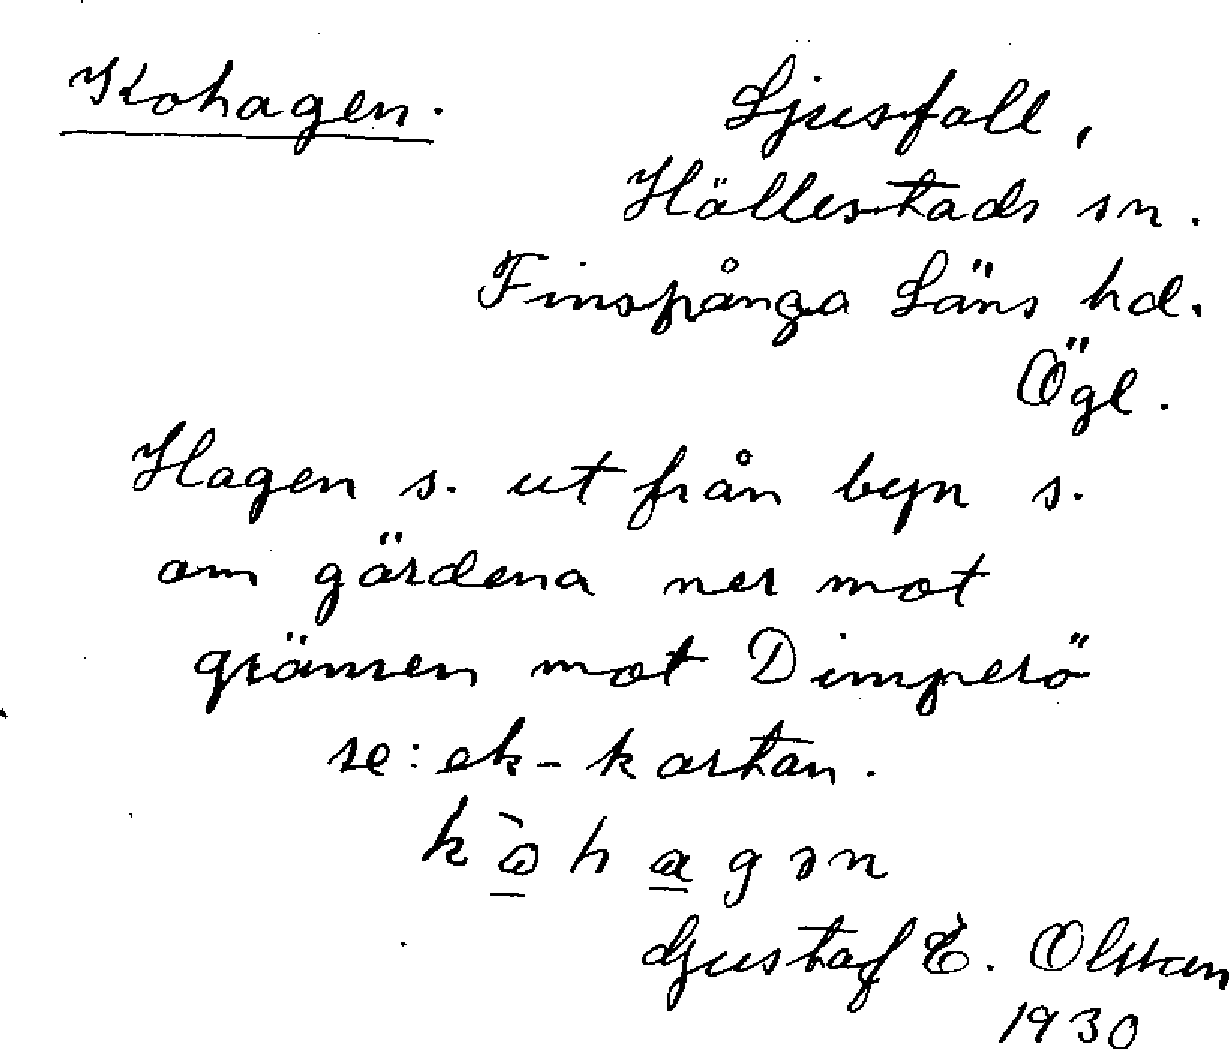 Kohagen.
Ljusfall,
Hällestads sn.
Finspånga Läns hd.
Ögl.
Hagen s. ut från byn s.
om gärdena ner mot
gränsen mot Dimperö
se: ek-kartan.
kὼhagən
Gustaf E. Olsson
1930